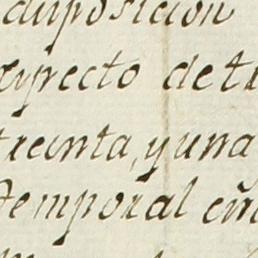 disposicion
respecto de tr
treinta, y una
temporal en